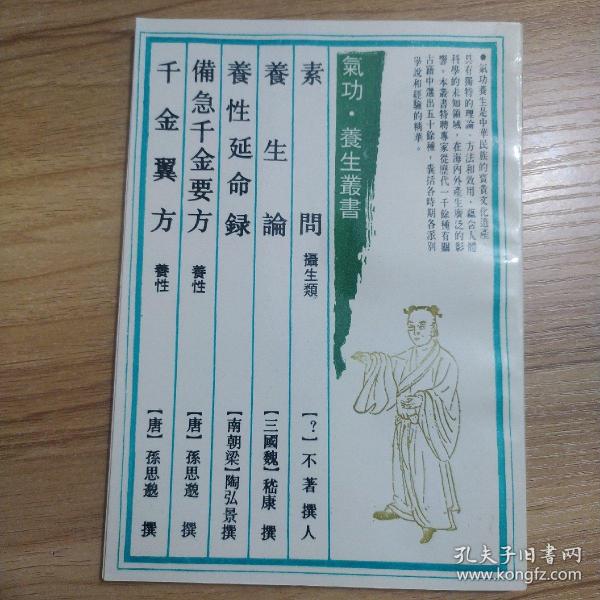 ●氣功養生是中華民族的寶貴文化遺產，
具有獨特的理論、方法和效用，蘊含人體
科學的未知領域，在海內外產生廣泛的影
響。本叢書特聘專家從歷代一千餘種有關
古籍中選出五十餘種，囊括各時期各派別
學說和經驗的精華。
氣功·養生叢書
素問 攝生類 【？】不著撰人
養生論 【三國魏】嵇康 撰
養性延命録 【南朝梁】陶弘景撰
備急千金要方 養性 【唐】孫思邈 撰
千金翼方 養性 【唐】孫思邈 撰
孔夫子旧書网
www.kongfz.com